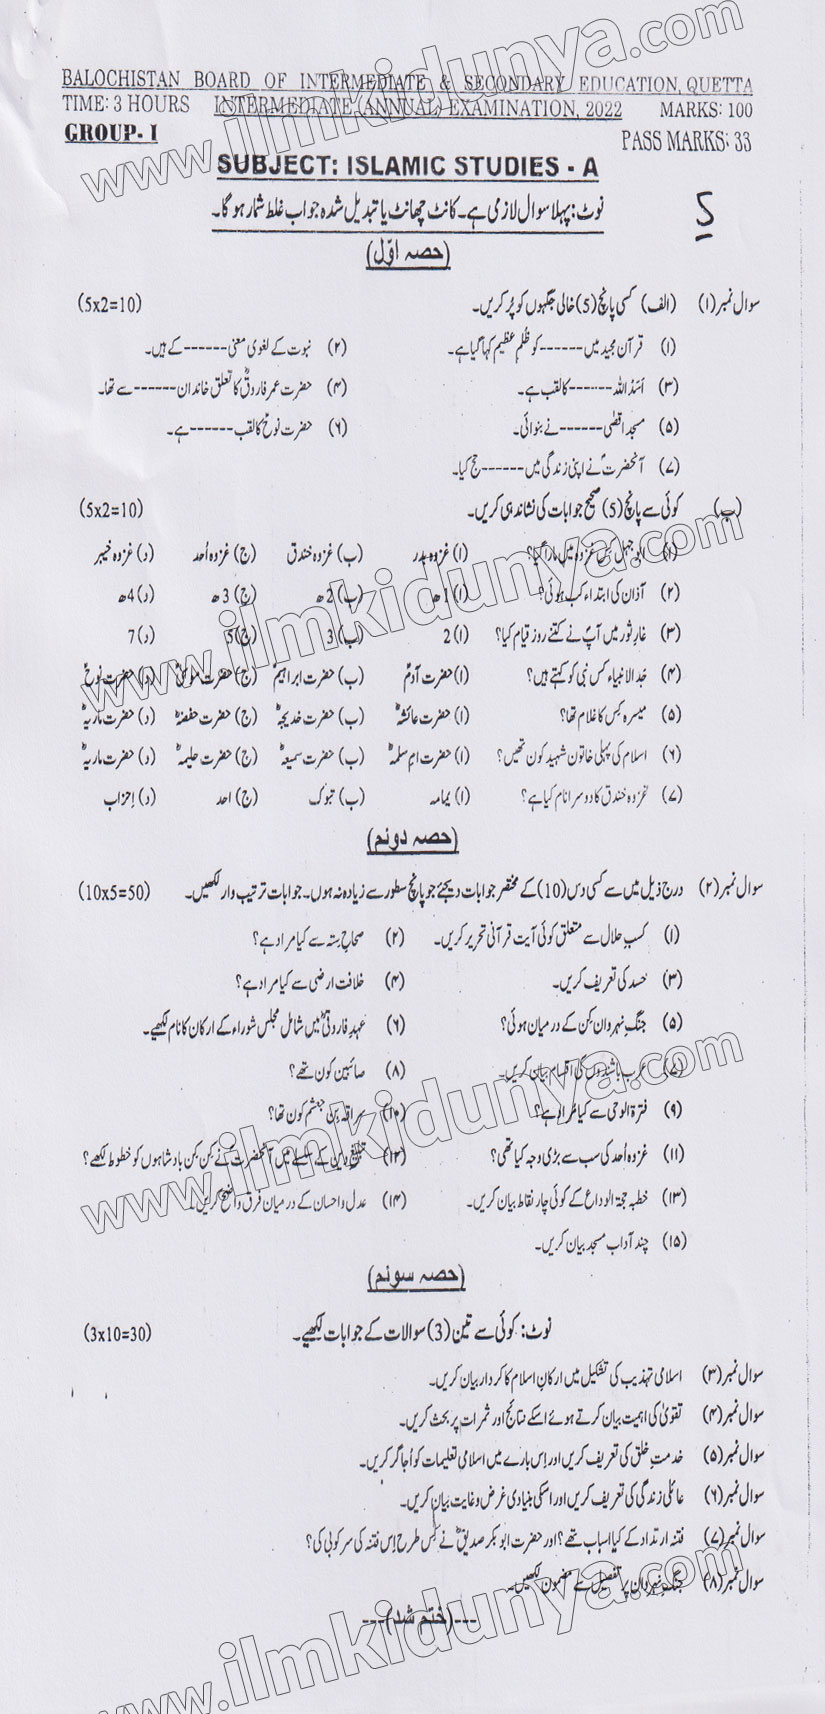 BALOCHISTAN BOARD OF INTERMEDIATE & SECONDARY EDUCATION, QUETTA
TIME: 3 HOURS INTERMEDIATE (ANNUAL) EXAMINATION, 2022 MARKS: 100
GROUP- I PASS MARKS: 33
SUBJECT: ISLAMIC STUDIES - A
نوٹ: پہلا سوال لازمی ہے۔ کانٹ چھانٹ یا تبدیل شدہ جواب غلط شمار ہو گا۔
(حصہ اوّل)
سوال نمبر (۱) (الف) کسی پانچ (5) خالی جگہوں کو پُر کریں۔ (5x2=10)
(۱) قرآن مجید میں ------ کو ظلمِ عظیم کہا گیا ہے۔ (۲) نبوت کے لغوی معنی ------ کے ہیں۔
(۳) اَسَدُ اللہ ------ کا لقب ہے۔ (۴) حضرت عمر فاروقؓ کا تعلق خاندان ------ سے تھا۔
(۵) مسجد اقصٰی ------ نے بنوائی۔ (۶) حضرت نوحؑ کا لقب ------ ہے۔
(۷) آنحضرتؐ نے اپنی زندگی میں ------ حج کیا۔
(ب) کوئی سے پانچ (5) صحیح جوابات کی نشاندہی کریں۔ (5x2=10)
(۱) ابوجہل کس غزوہ میں مارا گیا؟ (ا) غزوہ بدر (ب) غزوہ خندق (ج) غزوہ اُحد (د) غزوہ خیبر
(۲) آذان کی ابتداء کب ہوئی؟ (ا) 1ھ (ب) 2ھ (ج) 3ھ (د) 4ھ
(۳) غارِ ثور میں آپؐ نے کتنے روز قیام کیا؟ (ا) 2 (ب) 3 (ج) 5 (د) 7
(۴) جَدالانبیاء کس نبی کو کہتے ہیں؟ (ا) حضرت آدمؑ (ب) حضرت ابراہیمؑ (ج) حضرت موسیٰؑ (د) حضرت نوحؑ
(۵) میسرہ کس کا غلام تھا؟ (ا) حضرت عائشہؓ (ب) حضرت خدیجہؓ (ج) حضرت حفصہؓ (د) حضرت ماریہؓ
(۶) اسلام کی پہلی خاتون شہید کون تھیں؟ (ا) حضرت امِ سلمہؓ (ب) حضرت سمیعہؓ (ج) حضرت حلیمہؓ (د) حضرت ماریہؓ
(۷) غزوہ خندق کا دوسرا نام کیا ہے؟ (ا) یمامہ (ب) تبوک (ج) احد (د) اِحزاب
(حصہ دوئم)
سوال نمبر (۲) درج ذیل میں سے کسی دس (10) کے مختصر جوابات دیجئے جو پانچ سطور سے زیادہ نہ ہوں۔ جوابات ترتیب وار لکھیں۔ (10x5=50)
(۱) کسبِ حلال سے متعلق کوئی آیت قرآنی تحریر کریں۔ (۲) صحاحِ ستہ سے کیا مراد ہے؟
(۳) حسد کی تعریف کریں۔ (۴) خلافت ارضی سے کیا مراد ہے؟
(۵) جنگِ نہروان کن کے درمیان ہوئی؟ (۶) عہدِ فاروقیؓ میں شامل مجلس شوراء کے ارکان کا نام لکھیے۔
(۷) عرب باشندوں کی اقسام بیان کریں۔ (۸) صائبین کون تھے؟
(۹) فترۃ الوحی سے کیا مُراد ہے؟ (۱۰) سراقہ بن جعشم کون تھا؟
(۱۱) غزوہ اُحد کی سب سے بڑی وجہ کیا تھی؟ (۱۲) تبلیغِ دین کے سلسلے میں آنحضرتؐ نے کن کن بادشاہوں کو خطوط لکھے؟
(۱۳) خطبہ حجۃ الوداع کے کوئی چار نقاط بیان کریں۔ (۱۴) عدل و احسان کے درمیان فرق واضح کریں۔
(۱۵) چند آداب مسجد بیان کریں۔
(حصہ سوئم)
نوٹ: کوئی سے تین (3) سوالات کے جوابات لکھیے۔ (3x10=30)
سوال نمبر (۳) اسلامی تہذیب کی تشکیل میں ارکانِ اسلام کا کردار بیان کریں۔
سوال نمبر (۴) تقویٰ کی اہمیت بیان کرتے ہوئے اسکے نتائج اور ثمرات پر بحث کریں۔
سوال نمبر (۵) خدمتِ خلق کی تعریف کریں اور اِس بارے میں اسلامی تعلیمات کو اُجاگر کریں۔
سوال نمبر (۶) عائلی زندگی کی تعریف کریں اور اسکی بنیادی غرض و غایت بیان کریں۔
سوال نمبر (۷) فتنہ ارتداد کے کیا اسباب تھے؟ اور حضرت ابوبکر صدیقؓ نے کس طرح اِس فتنہ کی سرکوبی کی؟
سوال نمبر (۸) جنگِ نہروان پر تفصیل سے مضمون لکھیں۔
---(ختم شد)---
www.ilmkidunya.com
www.ilmkidunya.com
www.ilmkidunya.com
www.ilmkidunya.com